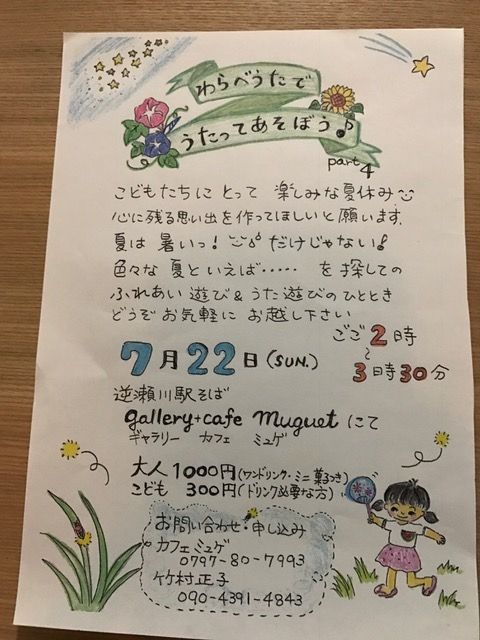 わらべうたで
うたってあそぼう♪
part 4
こどもたちにとって 楽しみな夏休み
心に残る思い出を作ってほしいと願います。
夏は 暑いっ! だけじゃない!
色々な 夏といえば…… を探しての
ふれあい遊び&うた遊びのひととき
どうぞお気軽に お越し下さい
7月22日(SUN.)
ごご2時
〜
3時30分
逆瀬川駅そば
gallery+cafe Muguet にて
ギャラリー カフェ ミュゲ
大人 1000円(ワンドリンク・ミニ菓子つき)
こども 300円(ドリンク必要な方)
お問い合わせ・申し込み
カフェミュゲ
0797-80-7993
竹村正子
090-4391-4843